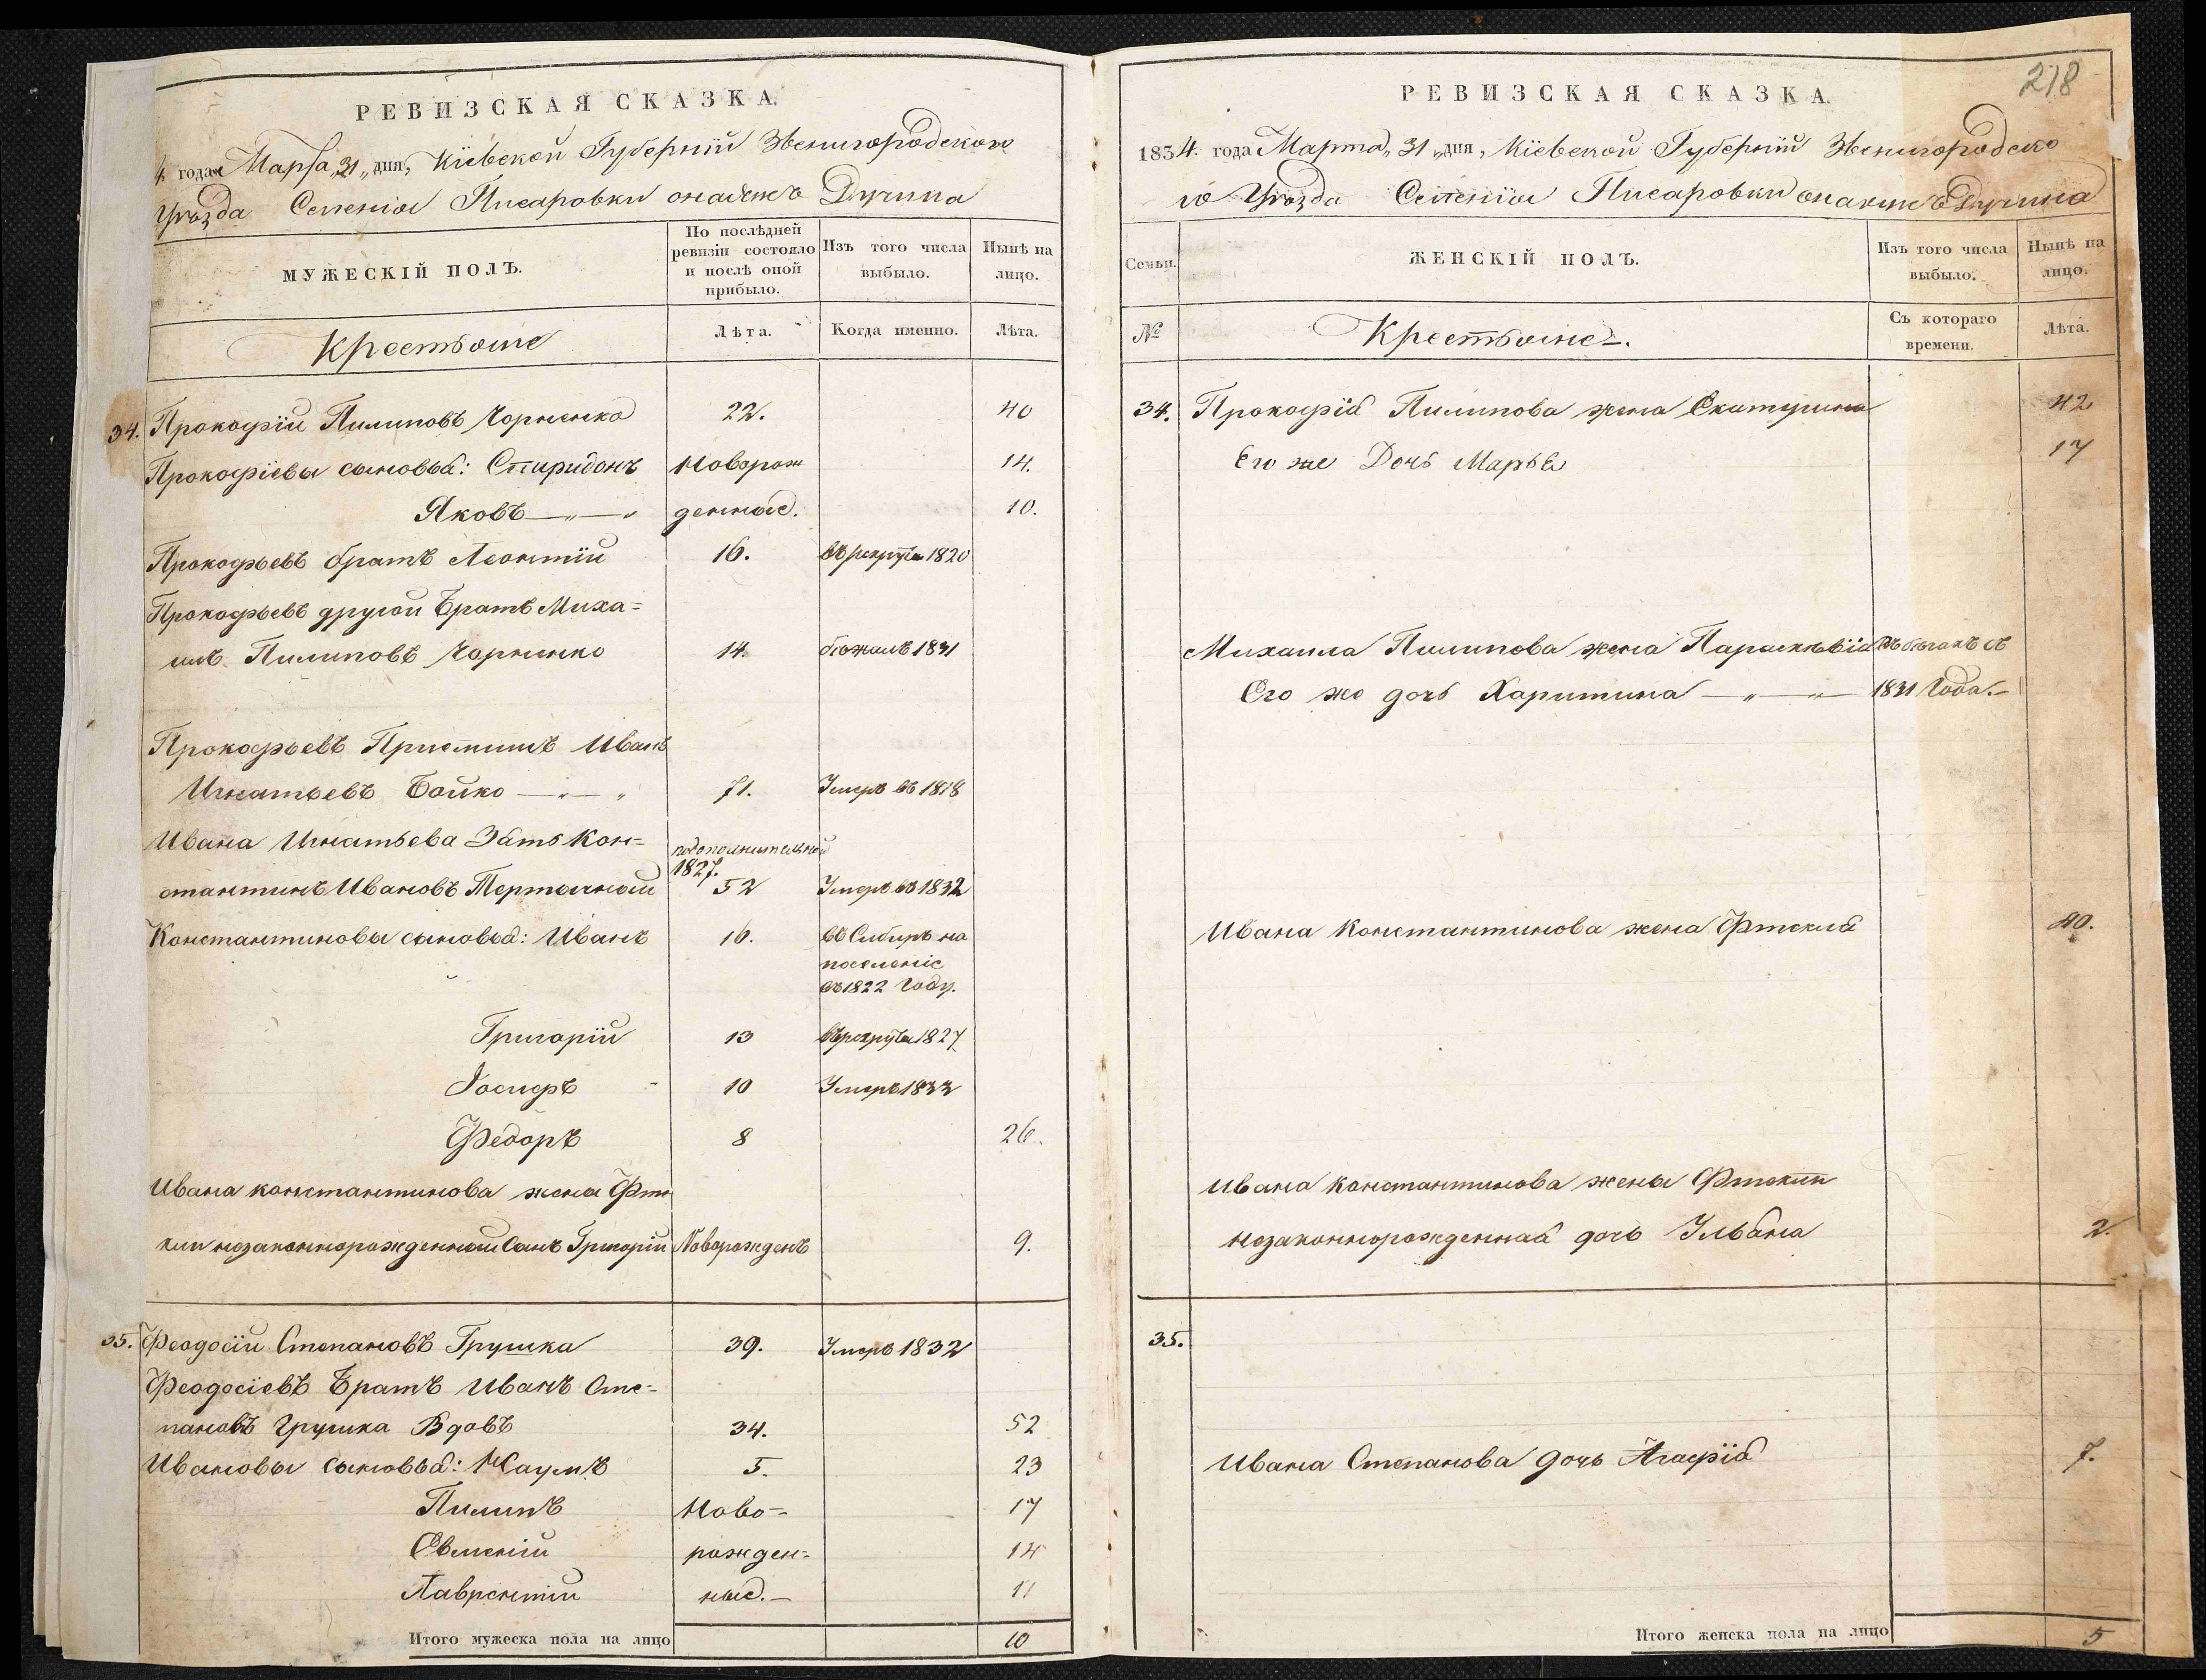 РЕВИЗСКАЯ СКАЗКА.
4. года Марта „31„ дня, Кіевской Губерніи Звенигородского
Уѣзда Селенія Писаровки онаже
МУЖЕСКІЙ ПОЛЪ.
По послѣдней ревизіи состояло и послѣ оной прибыло.
Изъ того числа выбыло.
Нынѣ на лицо.
Крестьяне
Лѣта.
Когда именно.
Лѣта.
34. Прокофій Пилиповъ Чорненко 22. 40
Прокофіевы сыновья: Спиридонъ Новорож 14.
Яковъ —„—„ денные. 10.
Прокофьевъ братъ Леонтій 16. въ рекруты 1820
Прокофьевъ другой Братъ Миха=
илъ Пилиповъ Чорненко 14. бѣжалъ 1831
Прокофьевъ Приемышъ Иванъ
Игнатьевъ Бойко —„—„ 71. Умеръ въ 1818
Ивана Игнатьева Зять Кон= подополнительной
1827.
стантинъ Ивановъ 52 Умеръ въ 1832
Константиновы сыновья: Иванъ 16. въ Сибирь на
поселеніе
въ 1822 Году.
Григорій 13 въ рекруты 1827
Іосифъ 10 Умеръ 1833
Федоръ 8 26.
Ивана Константинова жены Фтк
ли незаконнорожденный Сынъ Григорій Новорожденъ 9.
35. Феодосій Степановъ Грушка 39. Умеръ 1832
Феодосіевъ Братъ Иванъ Сте=
пановъ Грушка Вдовъ 34. 52
Ивановы сыновья: Наумъ 5. 23
Пилипъ Ново- 17
Евменій рожден= 14
Лаврентій ные.— 11
Итого мужеска пола на лицо 10
218
РЕВИЗСКАЯ СКАЗКА.
1834. года Марта „31„ дня, Кіевской Губерніи Звенигородско
го Уѣзда Селенія Писаровки
Семьи.
ЖЕНСКІЙ ПОЛЪ.
Изъ того числа выбыло.
Нынѣ на лицо.
№
Крестьяне.
Съ котораго времени.
Лѣта.
34. Прокофія Пилипова жена Екатерина 42
Его же Дочь Марья 17
Михаила Пилипова жена Параскѣвія въ бѣгахъ съ
Его же дочь Харитина —„—„— 1831 Года.—
Ивана Константинова жена Фтекла 40.
Ивана Константинова жены Фтекли
незаконнорожденная дочь Ульяна 2.
35.
Ивана Степанова Дочь Агафія 7.
Итого женска пола на лицо 5